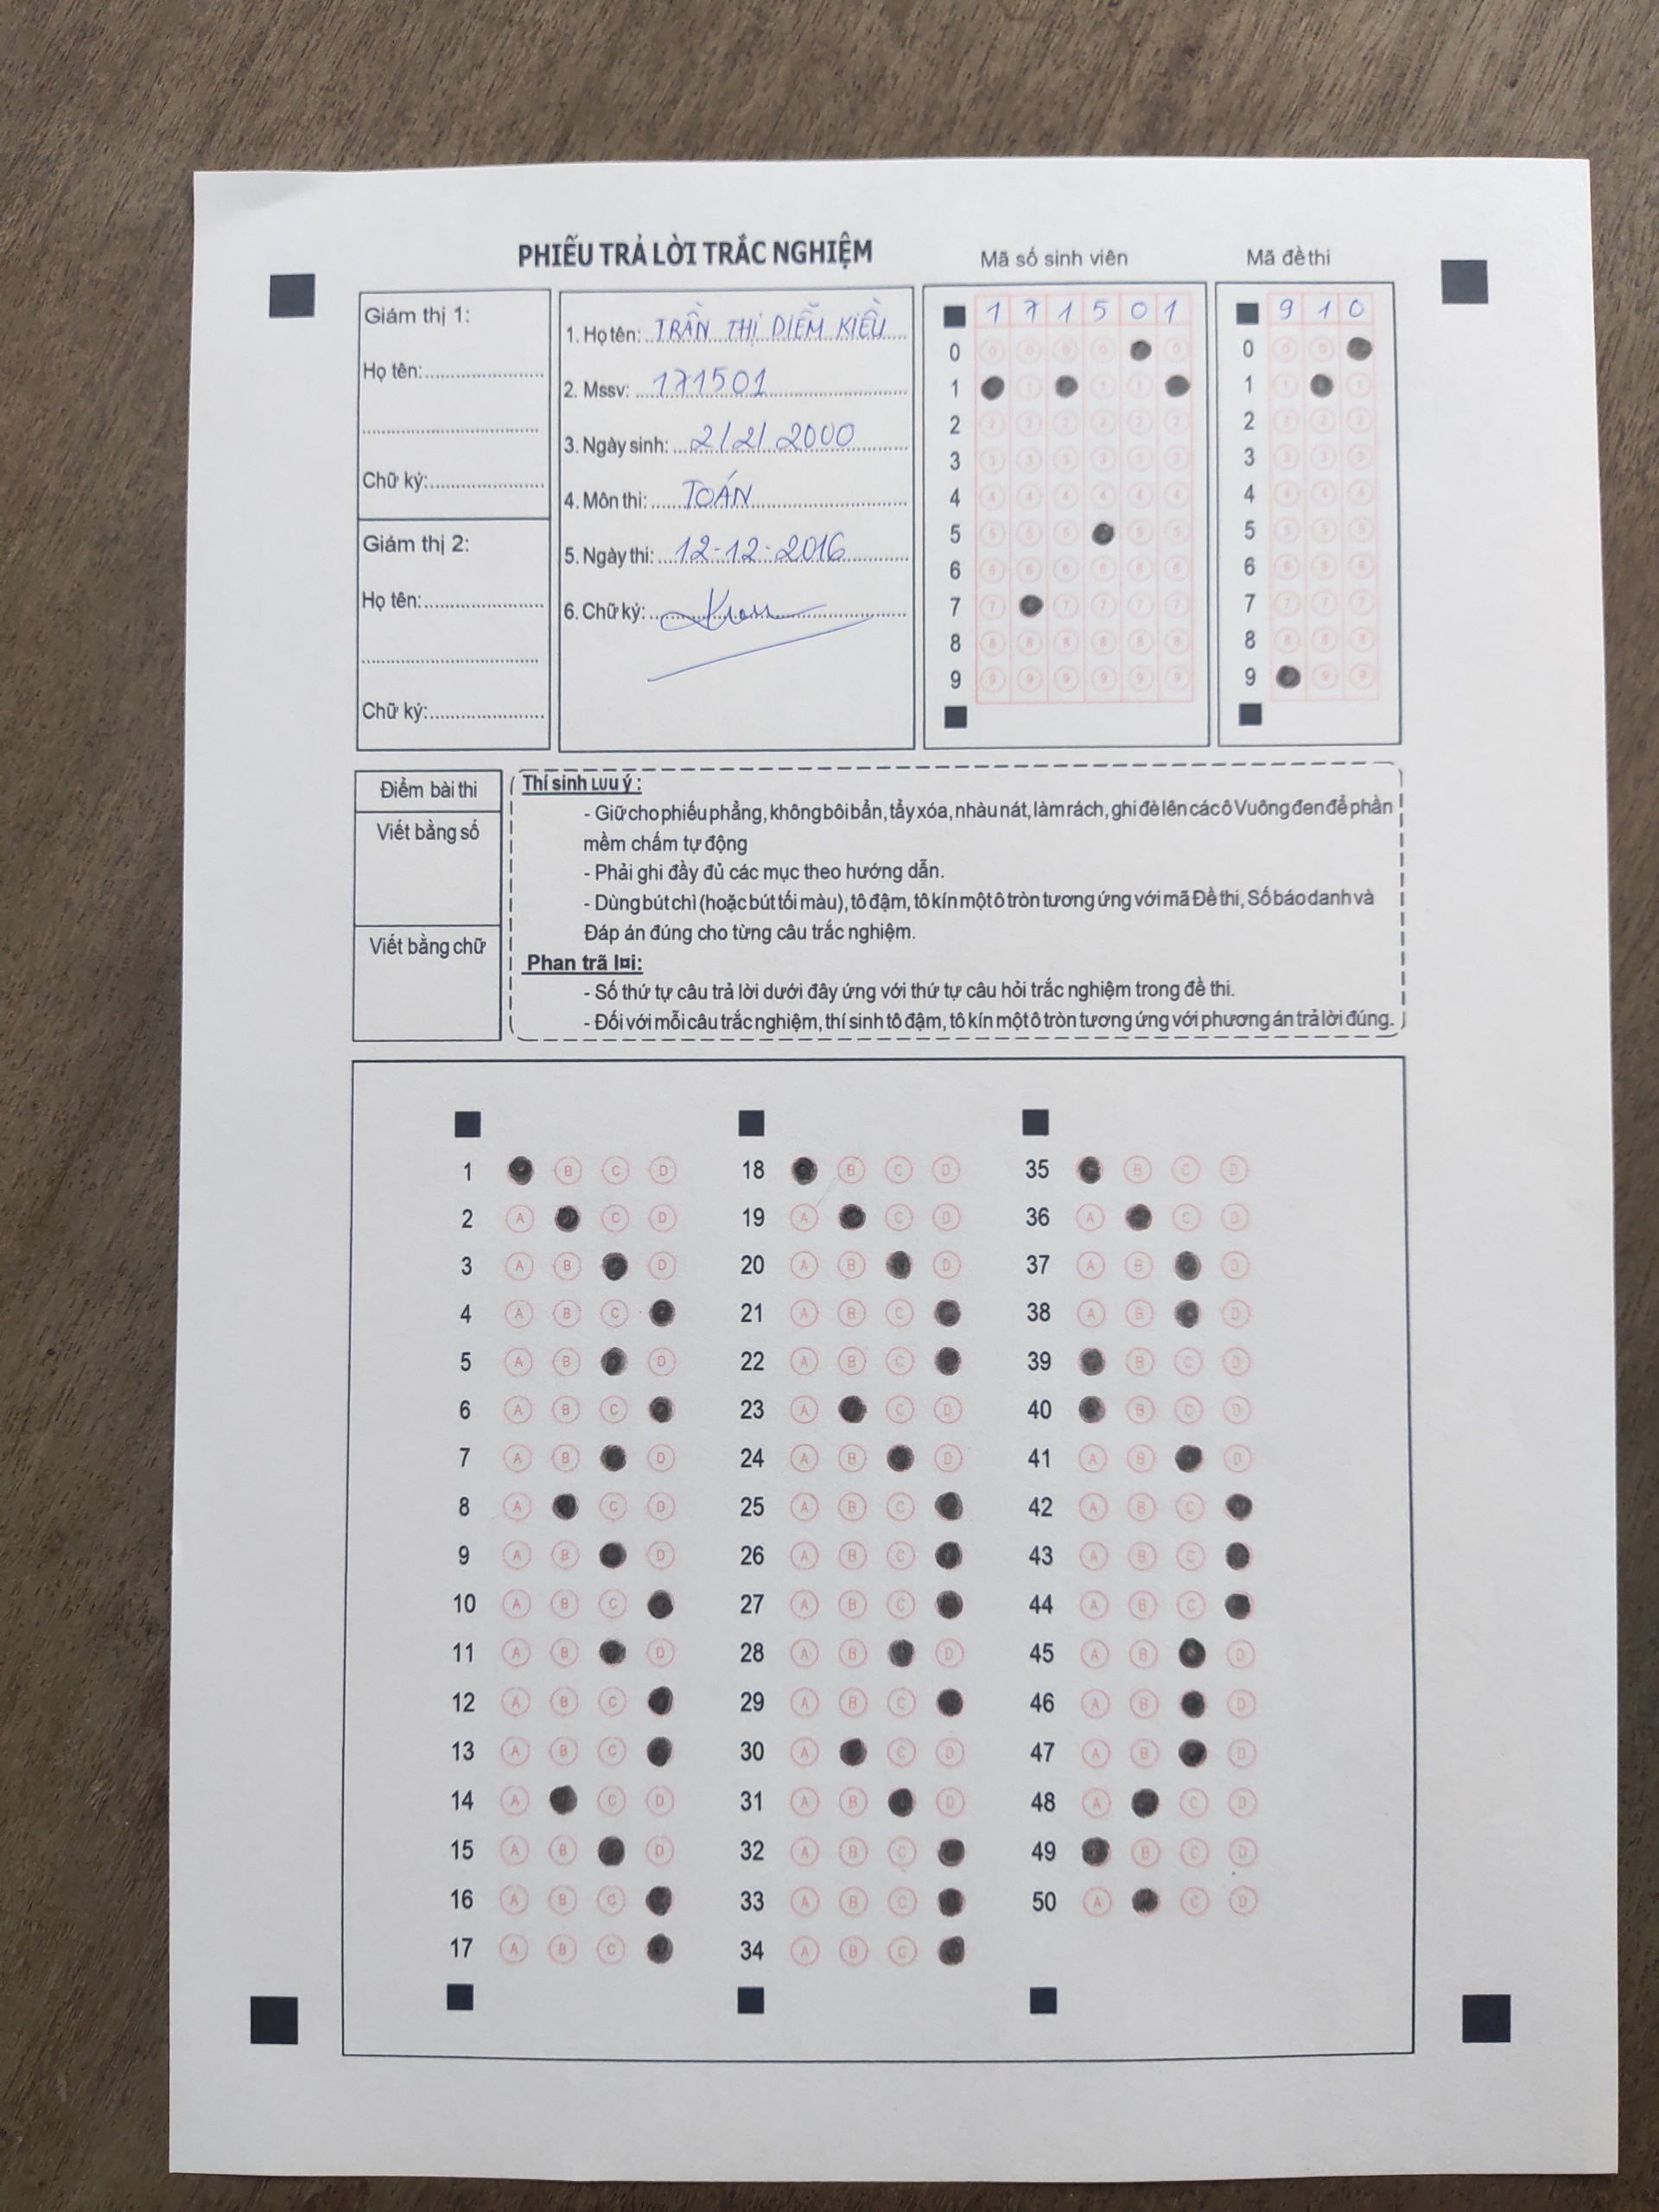 PHIẾU TRẢ LỜI TRẮC NGHIỆM
Mã số sinh viên
Mã đề thi
Giám thị 1:
Họ tên:
Chữ ký:
Giám thị 2:
Họ tên:
Chữ ký:
1. Họ tên: TRẦN THỊ DIỄM KIỀU
2. Mssv: 171501
3. Ngày sinh: 2/2/2000
4. Môn thi: TOÁN
5. Ngày thi: 12-12-2016
6. Chữ ký:
1 7 1 5 0 1
0 0 0 0 0 0
1 1 1
2 2 2 2 2 2 2
3 3 3 3 3 3 3
4 4 4 4 4 4 4
5 5 5 5 5 5
6 6 6 6 6 6 6
7 7 7 7 7 7
8 8 8 8 8 8 8
9 9 9 9 9 9 9
9 1 0
0 0 0
1 1 1
2 2 2 2
3 3 3 3
4 4 4 4
5 5 5 5
6 6 6 6
7 7 7 7
8 8 8 8
9 9 9
Điểm bài thi
Viết bằng số
Viết bằng chữ
Thí sinh LƯU ý :
- Giữ cho phiếu phẳng, không bôi bẩn, tẩy xóa, nhàu nát, làm rách, ghi đè lên các ô Vuông đen để phần
mềm chấm tự động
- Phải ghi đầy đủ các mục theo hướng dẫn.
- Dùng bút chì (hoặc bút tối màu), tô đậm, tô kín một ô tròn tương ứng với mã Đề thi, Số báo danh và
Đáp án đúng cho từng câu trắc nghiệm.
Phan trã l¤i:
- Số thứ tự câu trả lời dưới đây ứng với thứ tự câu hỏi trắc nghiệm trong đề thi.
- Đối với mỗi câu trắc nghiệm, thí sinh tô đậm, tô kín một ô tròn tương ứng với phương án trả lời đúng.
1 B C D
2 A C D
3 A B D
4 A B C
5 A B D
6 A B C
7 A B D
8 A C D
9 A B D
10 A B C
11 A B D
12 A B C
13 A B C
14 A C D
15 A B D
16 A B C
17 A B C
18 B C D
19 A C D
20 A B D
21 A B C
22 A B C
23 A C D
24 A B D
25 A B C
26 A B C
27 A B C
28 A B D
29 A B C
30 A C D
31 A B D
32 A B C
33 A B C
34 A B C
35 B C D
36 A C D
37 A B D
38 A B D
39 B C D
40 B C D
41 A B D
42 A B C
43 A B C
44 A B C
45 A B D
46 A B D
47 A B D
48 A C D
49 B C D
50 A C D